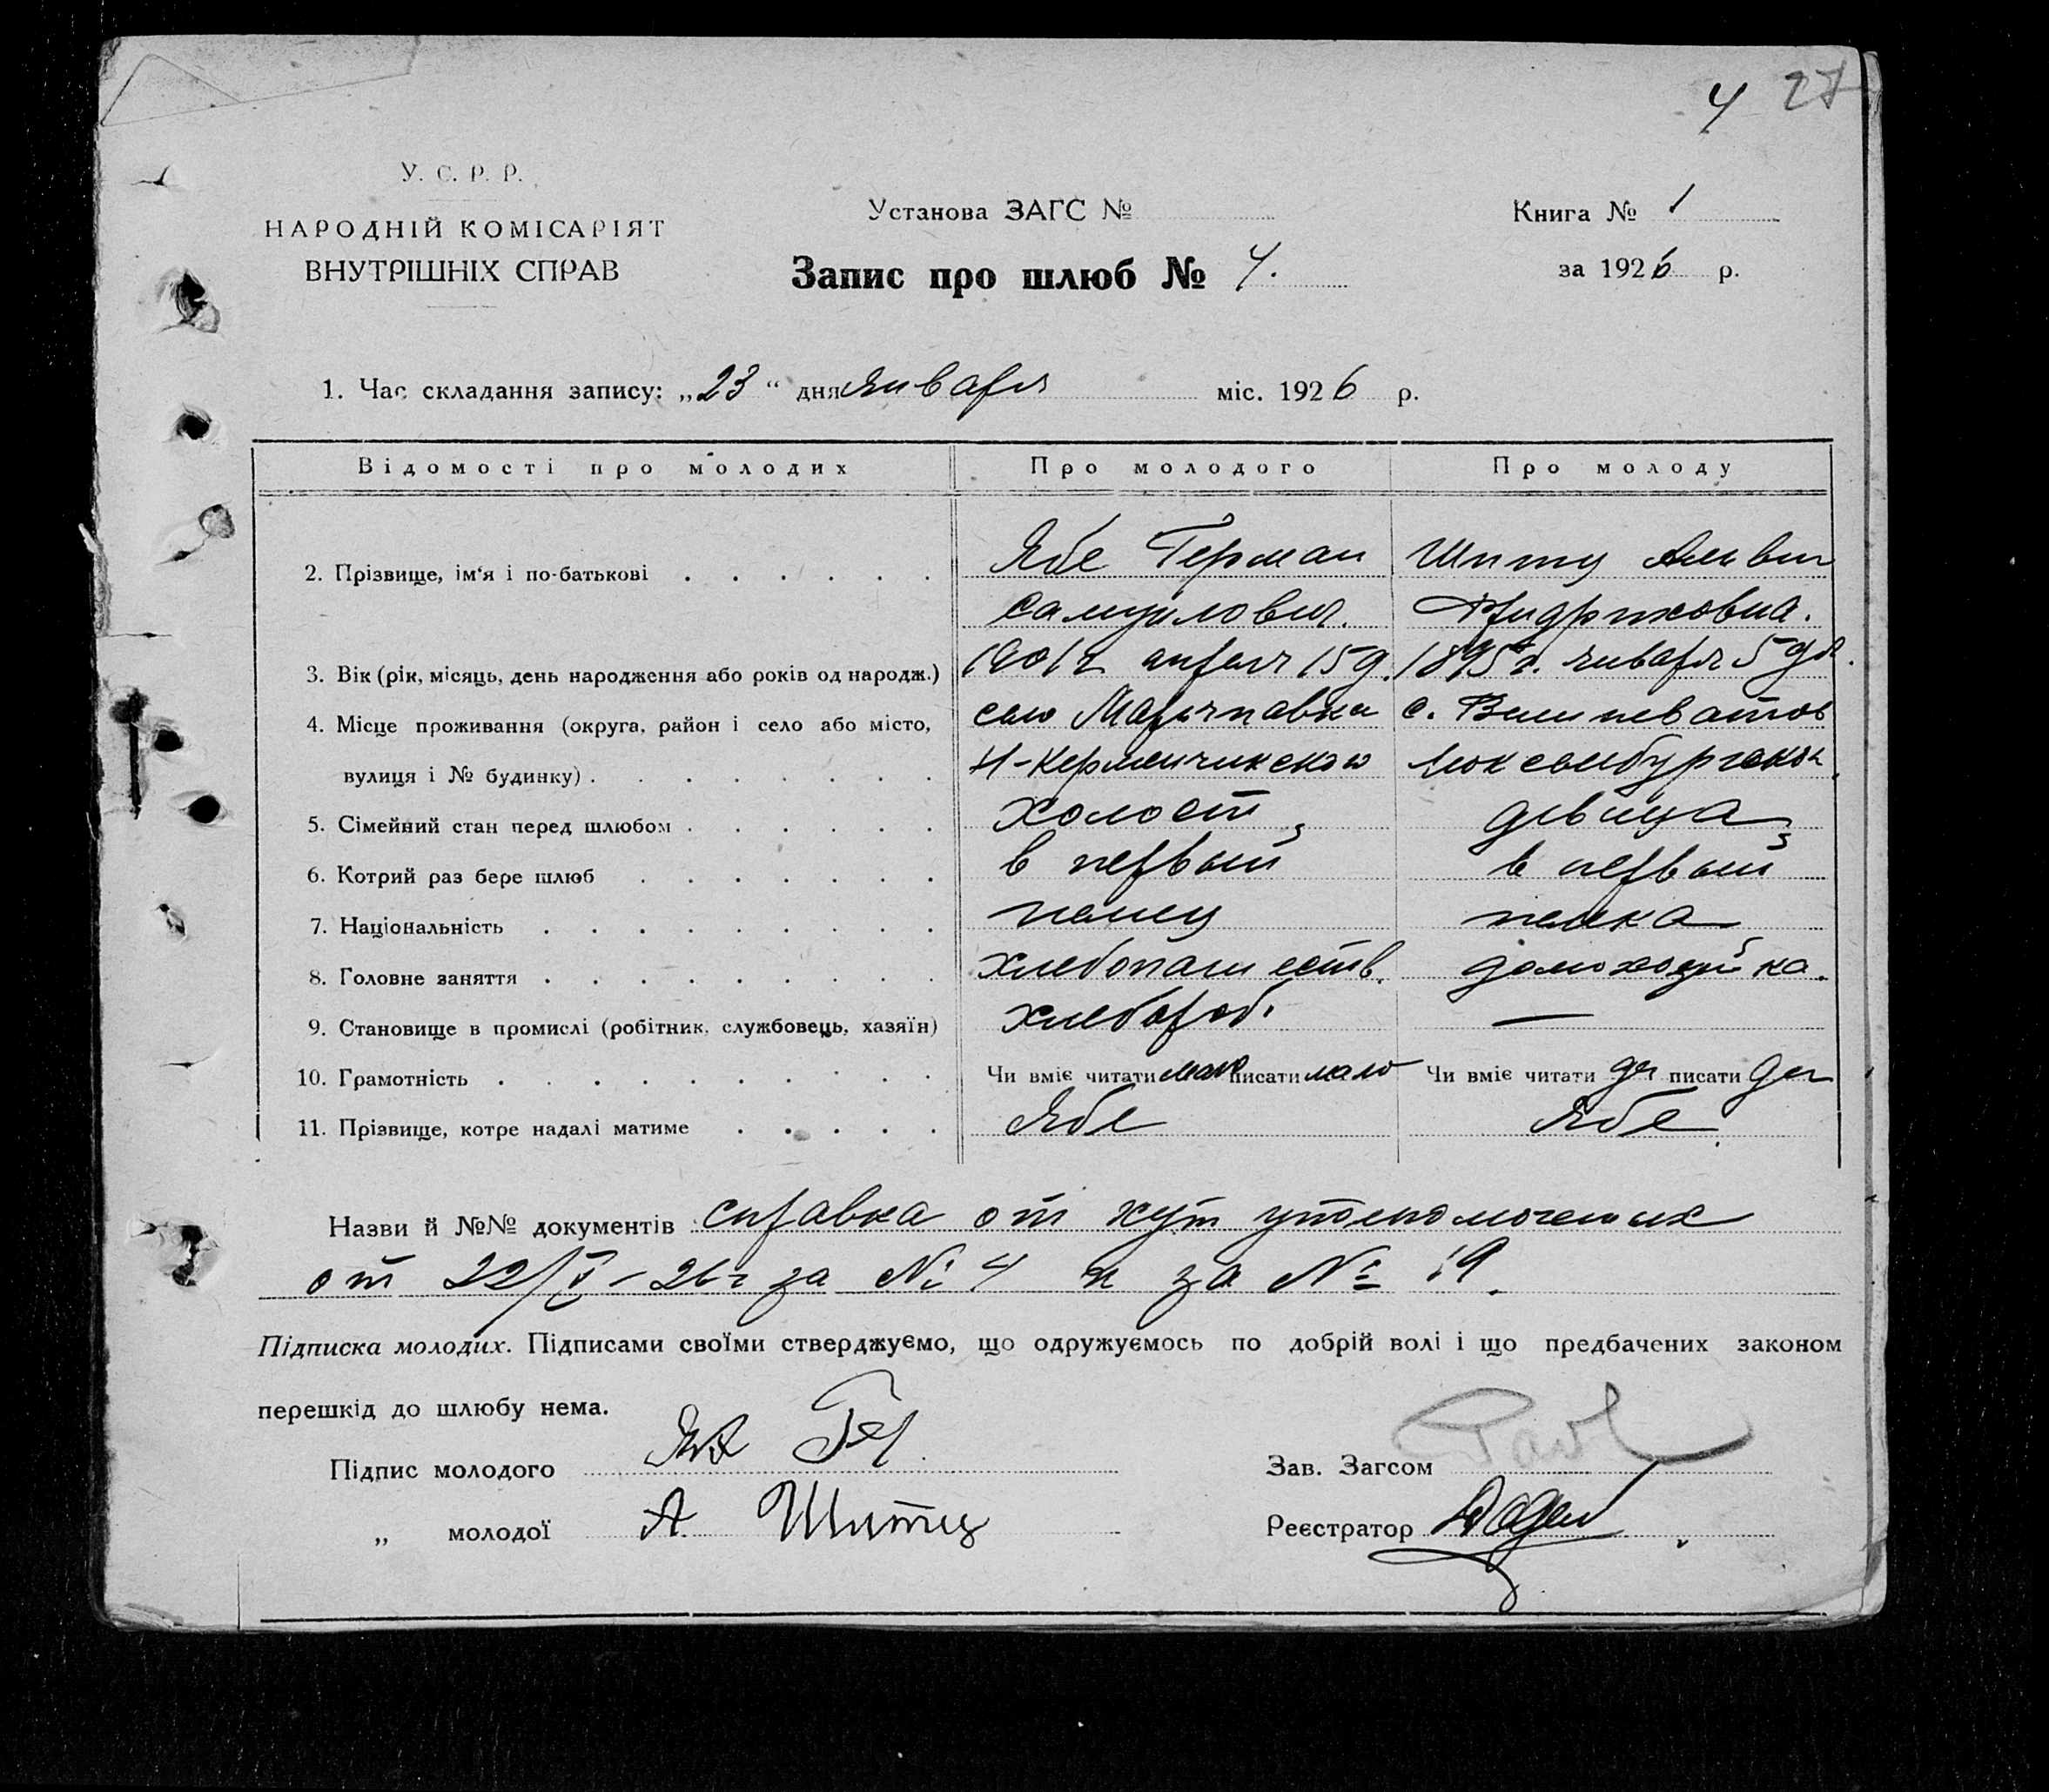 4 27
У. С. Р. Р.
НАРОДНІЙ КОМІСАРІЯТ
ВНУТРІШНІХ СПРАВ
Установа ЗАГС №
Запис про шлюб № 4.
Книга № 1
за 1926 р.
1. Час складання запису: „23“ дня января міс. 1926 р.
Відомості про молодих Про молодого Про молоду
2. Прізвище, ім‘я і по-батькові Ябе Герман Шитц
Самуилович.
3. Вік (рік, місяць, день народження або років од народж.) 1901 г. апреля 15 д. 1895 г. января 5 дн.
4. Місце проживання (округа, район і село або місто, село с.
вулиця і № будинку) Н-Керменчикского Люксембургской
5. Сімейний стан перед шлюбом холост девица
6. Котрий раз бере шлюб в первый в первый
7. Національність немец немка
8. Головне заняття хлебопашеств. домохозяйка.
9. Становище в промислі (робітник, службовець, хазяїн) хлебороб. —
10. Грамотність Чи вміє читати мало писати мало Чи вміє читати да писати да
11. Прізвище, котре надалі матиме Ябе Ябе.
Назви й №№ документів справка от
от 22/I-26 г за № 4 и за № 19.
Підписка молодих. Підписами своїми стверджуємо, що одружуємось по добрій волі і що предбачених законом
перешкід до шлюбу нема.
Підпис молодого Ябе Гер
„ молодої А. Шитц
Зав. Загсом
Реєстратор